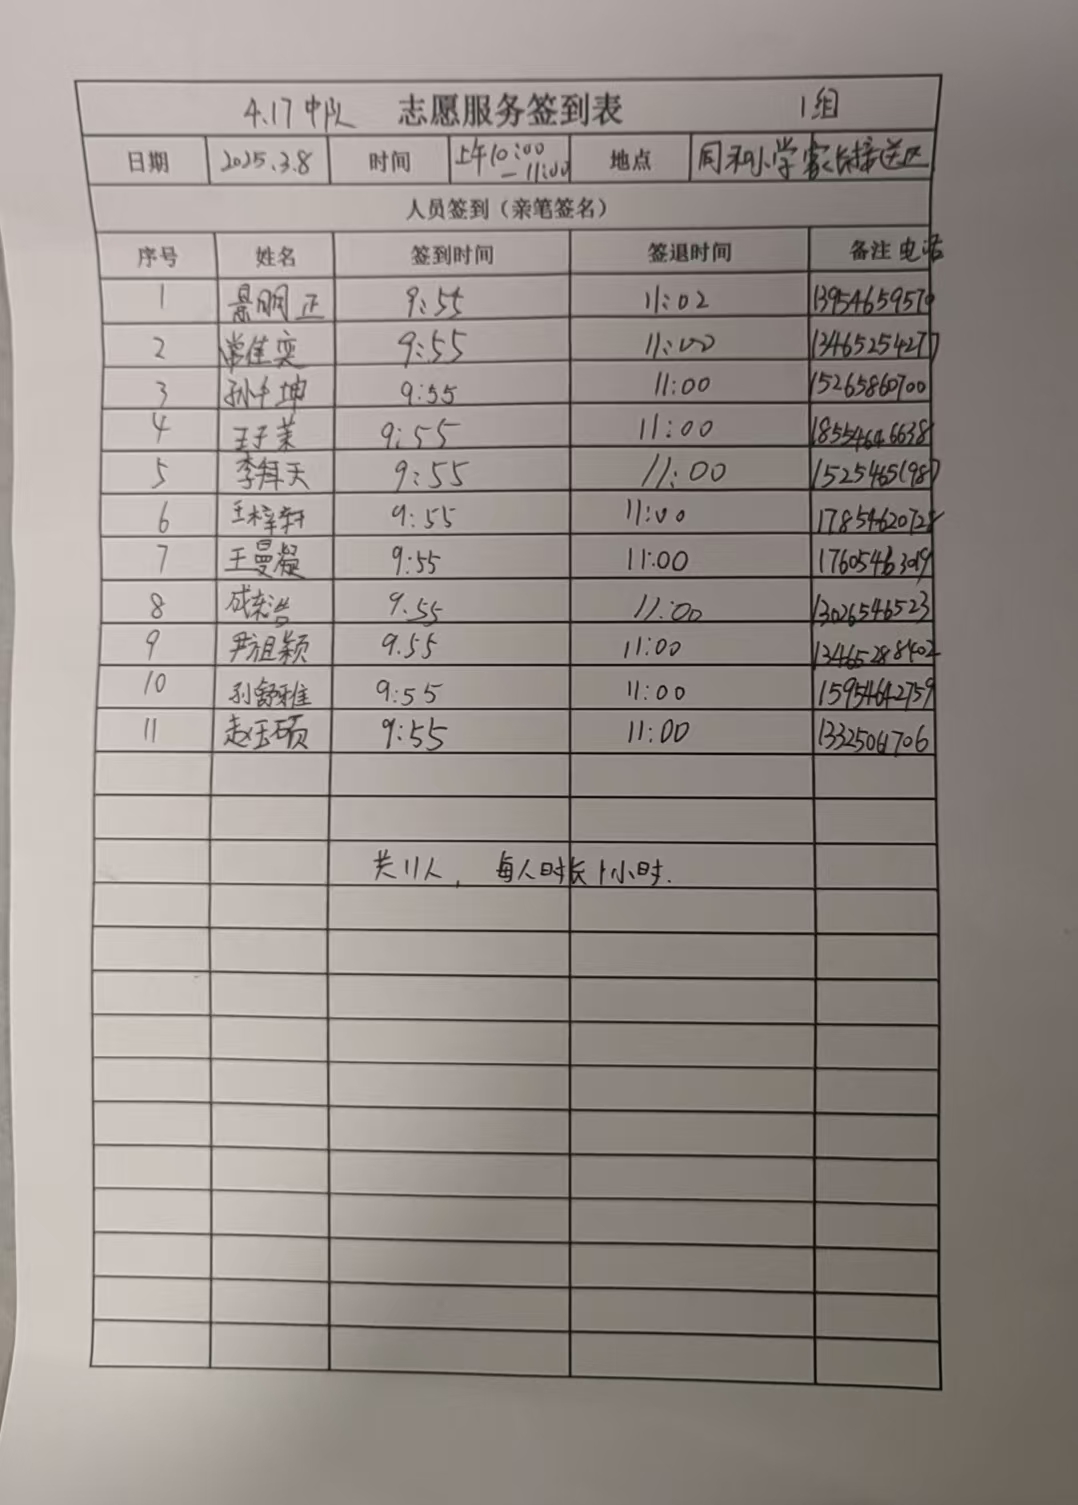 4.17中队 志愿服务签到表 1组
日期 2025.3.8 时间 上午10:00-11:00 地点 同和小学家长接送区
人员签到（亲笔签名）
序号 姓名 签到时间 签退时间 备注 电话
1 景明正 9:55 11:02 13954659570
2 常佳奕 9:55 11:00 13465254277
3 孙千坤 9:55 11:00 15265860700
4 王子茉 9:55 11:00 18554646638
5 李拜天 9:55 11:00 15254651987
6 王梓轩 9:55 11:00 17854620728
7 王曼凝 9:55 11:00 17605463019
8 9.55 11:00 13026546523
9 尹祖颖 9.55 11:00 13465288402
10 孙舒雅 9:55 11:00 15954642759
11 赵玉硕 9:55 11:00
共11人，每人时长1小时.